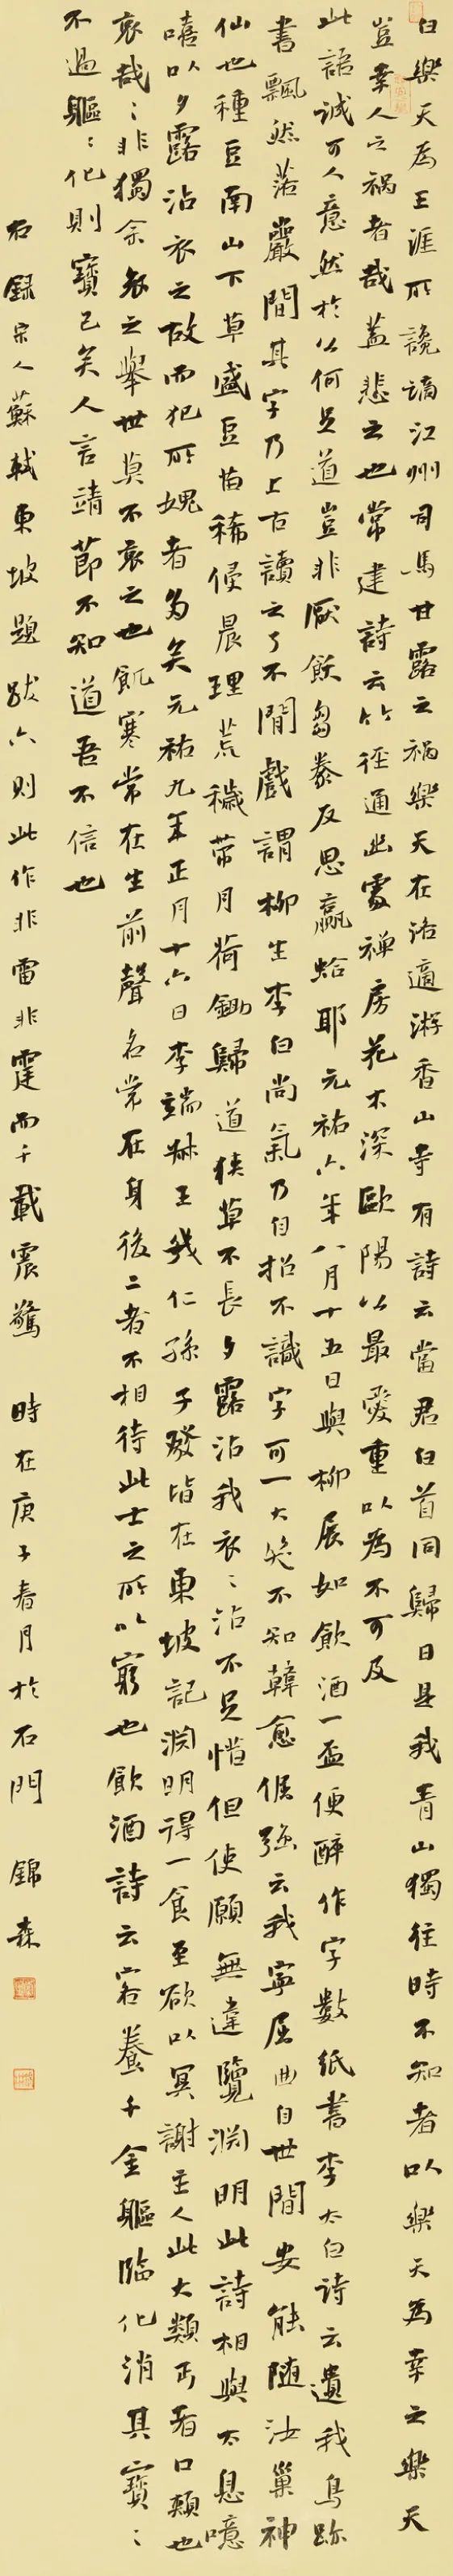 白樂天為王涯所讒謫江州司馬甘露之禍樂天在洛適游香山寺有詩云當君白首同歸日是我青山獨往時不知者以樂天為幸之樂天
豈幸人之禍者哉蓋悲之也常建詩云竹徑通幽處禪房花木深歐陽公最愛重以為不可及
此語誠可人意然於公何足道豈非厭飫芻豢反思蠃蛤耶元祐六年八月十五日與柳展如飲酒一盃便醉作字數紙書李太白詩云遺我鳥跡
書飄然落巖間其字乃上古讀之了不閒戲謂柳生李白尚氣乃自招不識字可一大笑不如韓愈倔强云我寧屈曲自世間安能隨汝巢神
仙也種豆南山下草盛豆苗稀侵晨理荒穢帶月荷鋤歸道狹草不長夕露沾我衣〻沾不足惜但使願無違覽淵明此詩相與太息噫
嘻以夕露沾衣之故而犯所媿者多矣元祐九年正月十六日李端叔王幾仁孫子發皆在東坡記淵明得一食至欲以冥謝主人此大類丐者口頰也
哀哉〻非獨余哀之舉世莫不哀之也飢寒常在生前聲名常在身後二者不相待此士之所以窮也飲酒詩云客養千金軀臨化消其寶〻
不過軀〻化則寶已矣人言靖節不知道吾不信也
右錄宋人蘇軾東坡題跋六則此作非雷非霆而千載震驚 時在庚子春月於石門 錦森